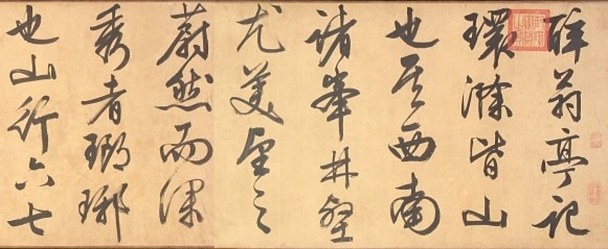 醉翁亭記
環滁皆山
也其西南
諸峯林壑
尤美望之
蔚然而深
秀者瑯琊
也山行六七